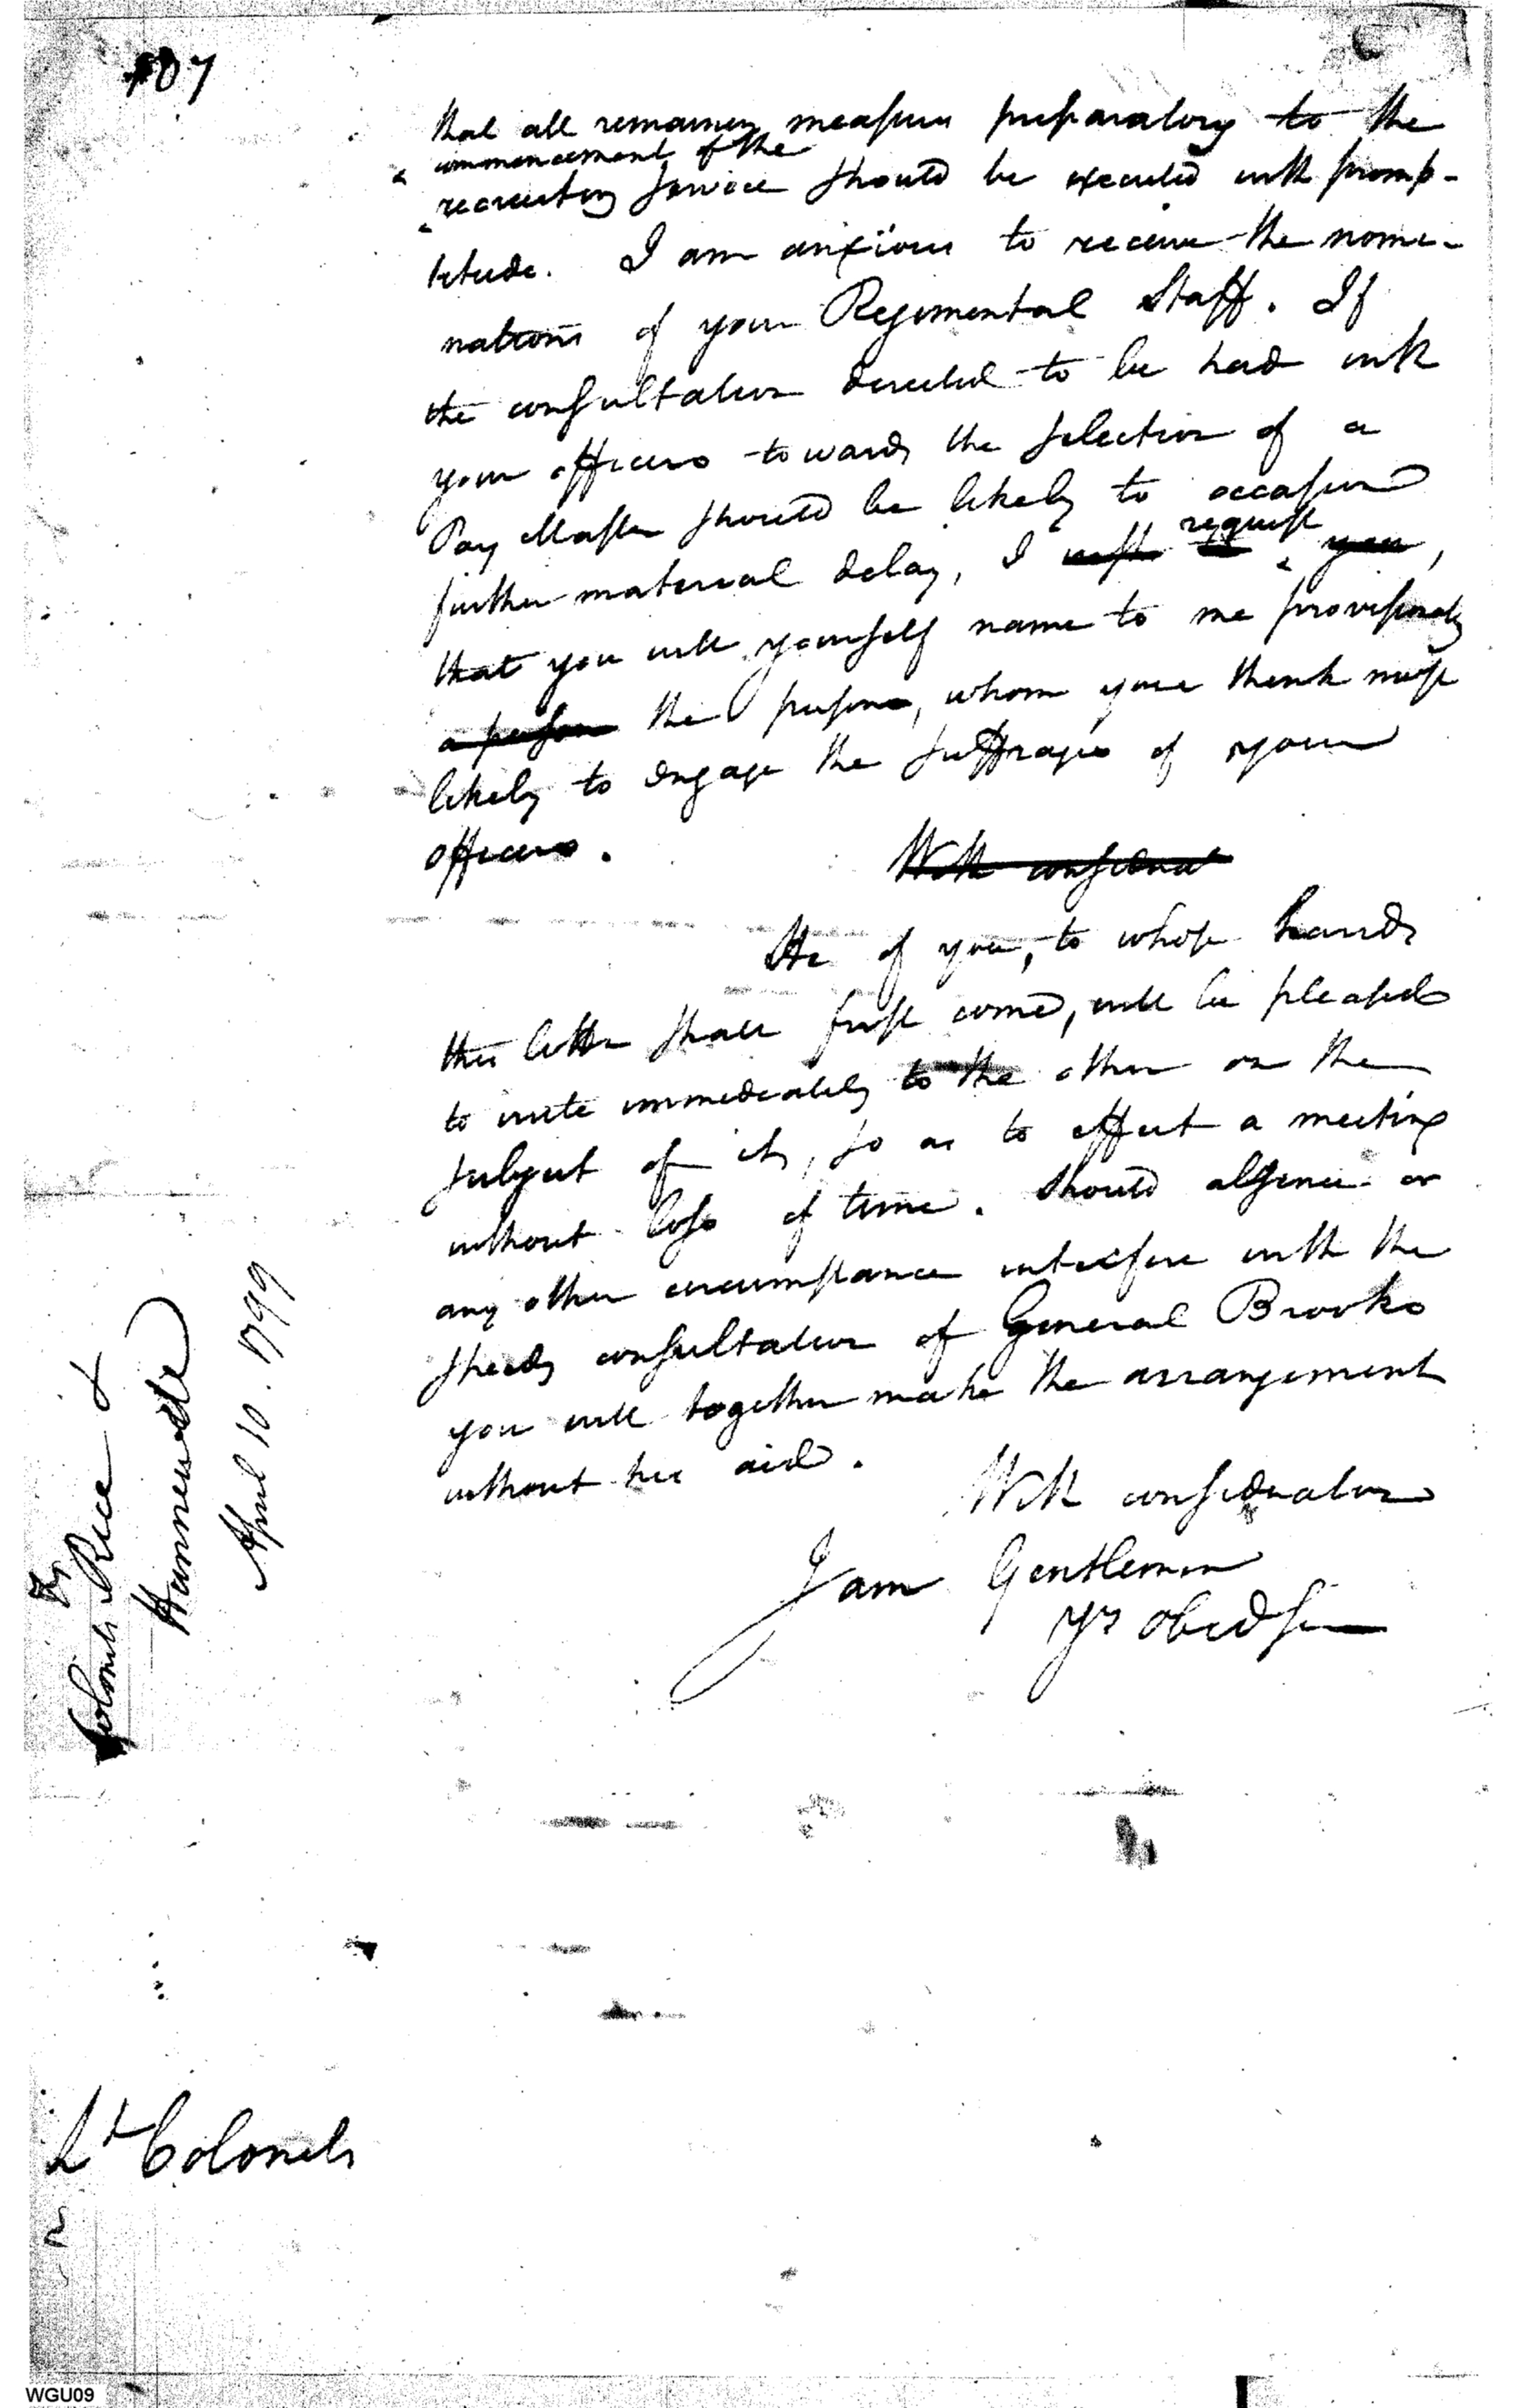 107
that all remaining measures preparatory to the
commencement of the
recruiting service should be executed with promp-
titude. I am anxious to receive the nomi-
nations of your Regimental Staff. If
the consultation directed to be had with
your officers towards the selection of a
Pay Master should be likely to occasion
request
further material delay, I wish you,
that you will yourself name to me provisionally
a person the person, whom you think most
likely to engage the suffrages of your
officers.
With considerat
He of you, to whose hands
this letter shall first come, will be pleased
to write immediately to the other on the
subject of it, so as to effect a meeting
without loss of time. Should absence or
any other circumstance interfere with the
speedy consultation of General Brooks
you will together make the arrangement
without his aid.
With consideration
I am Gentlemen
Yr Obed ser
To
Colonels Rice &
Hunnewell
April 10. 1799
Lt Colonels
WGU09